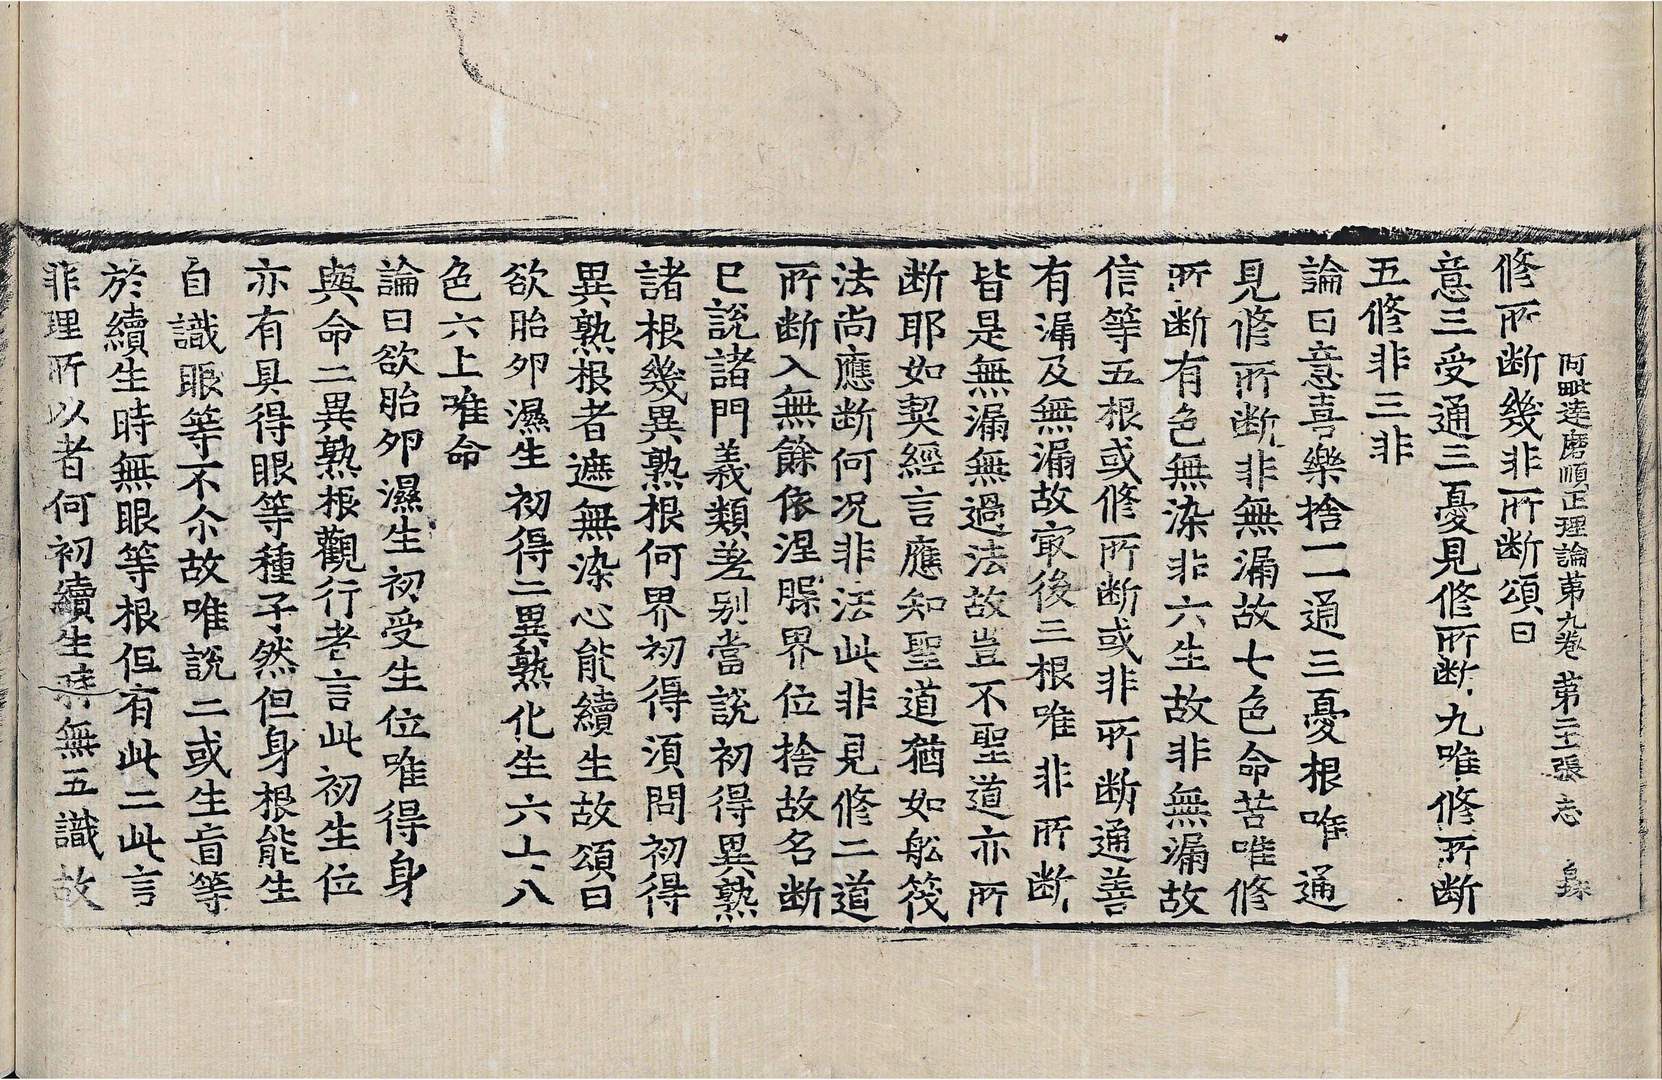 阿毗達磨順正理論第九卷 第二十張 忘
修所断幾非所断頌曰
意三受通三憂見修所断九唯修所断
五修非三非
論曰意喜樂捨一一通三憂根唯通
見修所断非無漏故七色命苦唯修
所断有色無染非六生故非無漏故
信等五根或修所断或非所断通善
有漏及無漏故㝡後三根唯非所断
皆是無漏無過法故豈不聖道亦所
断耶如契經言應知聖道猶如舩筏
法尚應断何况非法此非見修二道
所断入無餘依涅槃界位捨故名断
已說諸門義類差别當說初得異熟
諸根幾異熟根何界初得湏問初得
異熟根者遮無染心能續生故頌曰
欲胎卵濕生初得二異熟化生六七八
色六上唯命
論曰欲胎卵濕生初受生位唯得身
與命二異熟根觀行者言此初生位
亦有具得眼等種子然但身根能生
自識眼等不尒故唯說二或生盲等
於續生時無眼等根但有此二此言
非理所以者何初續生時無五識故